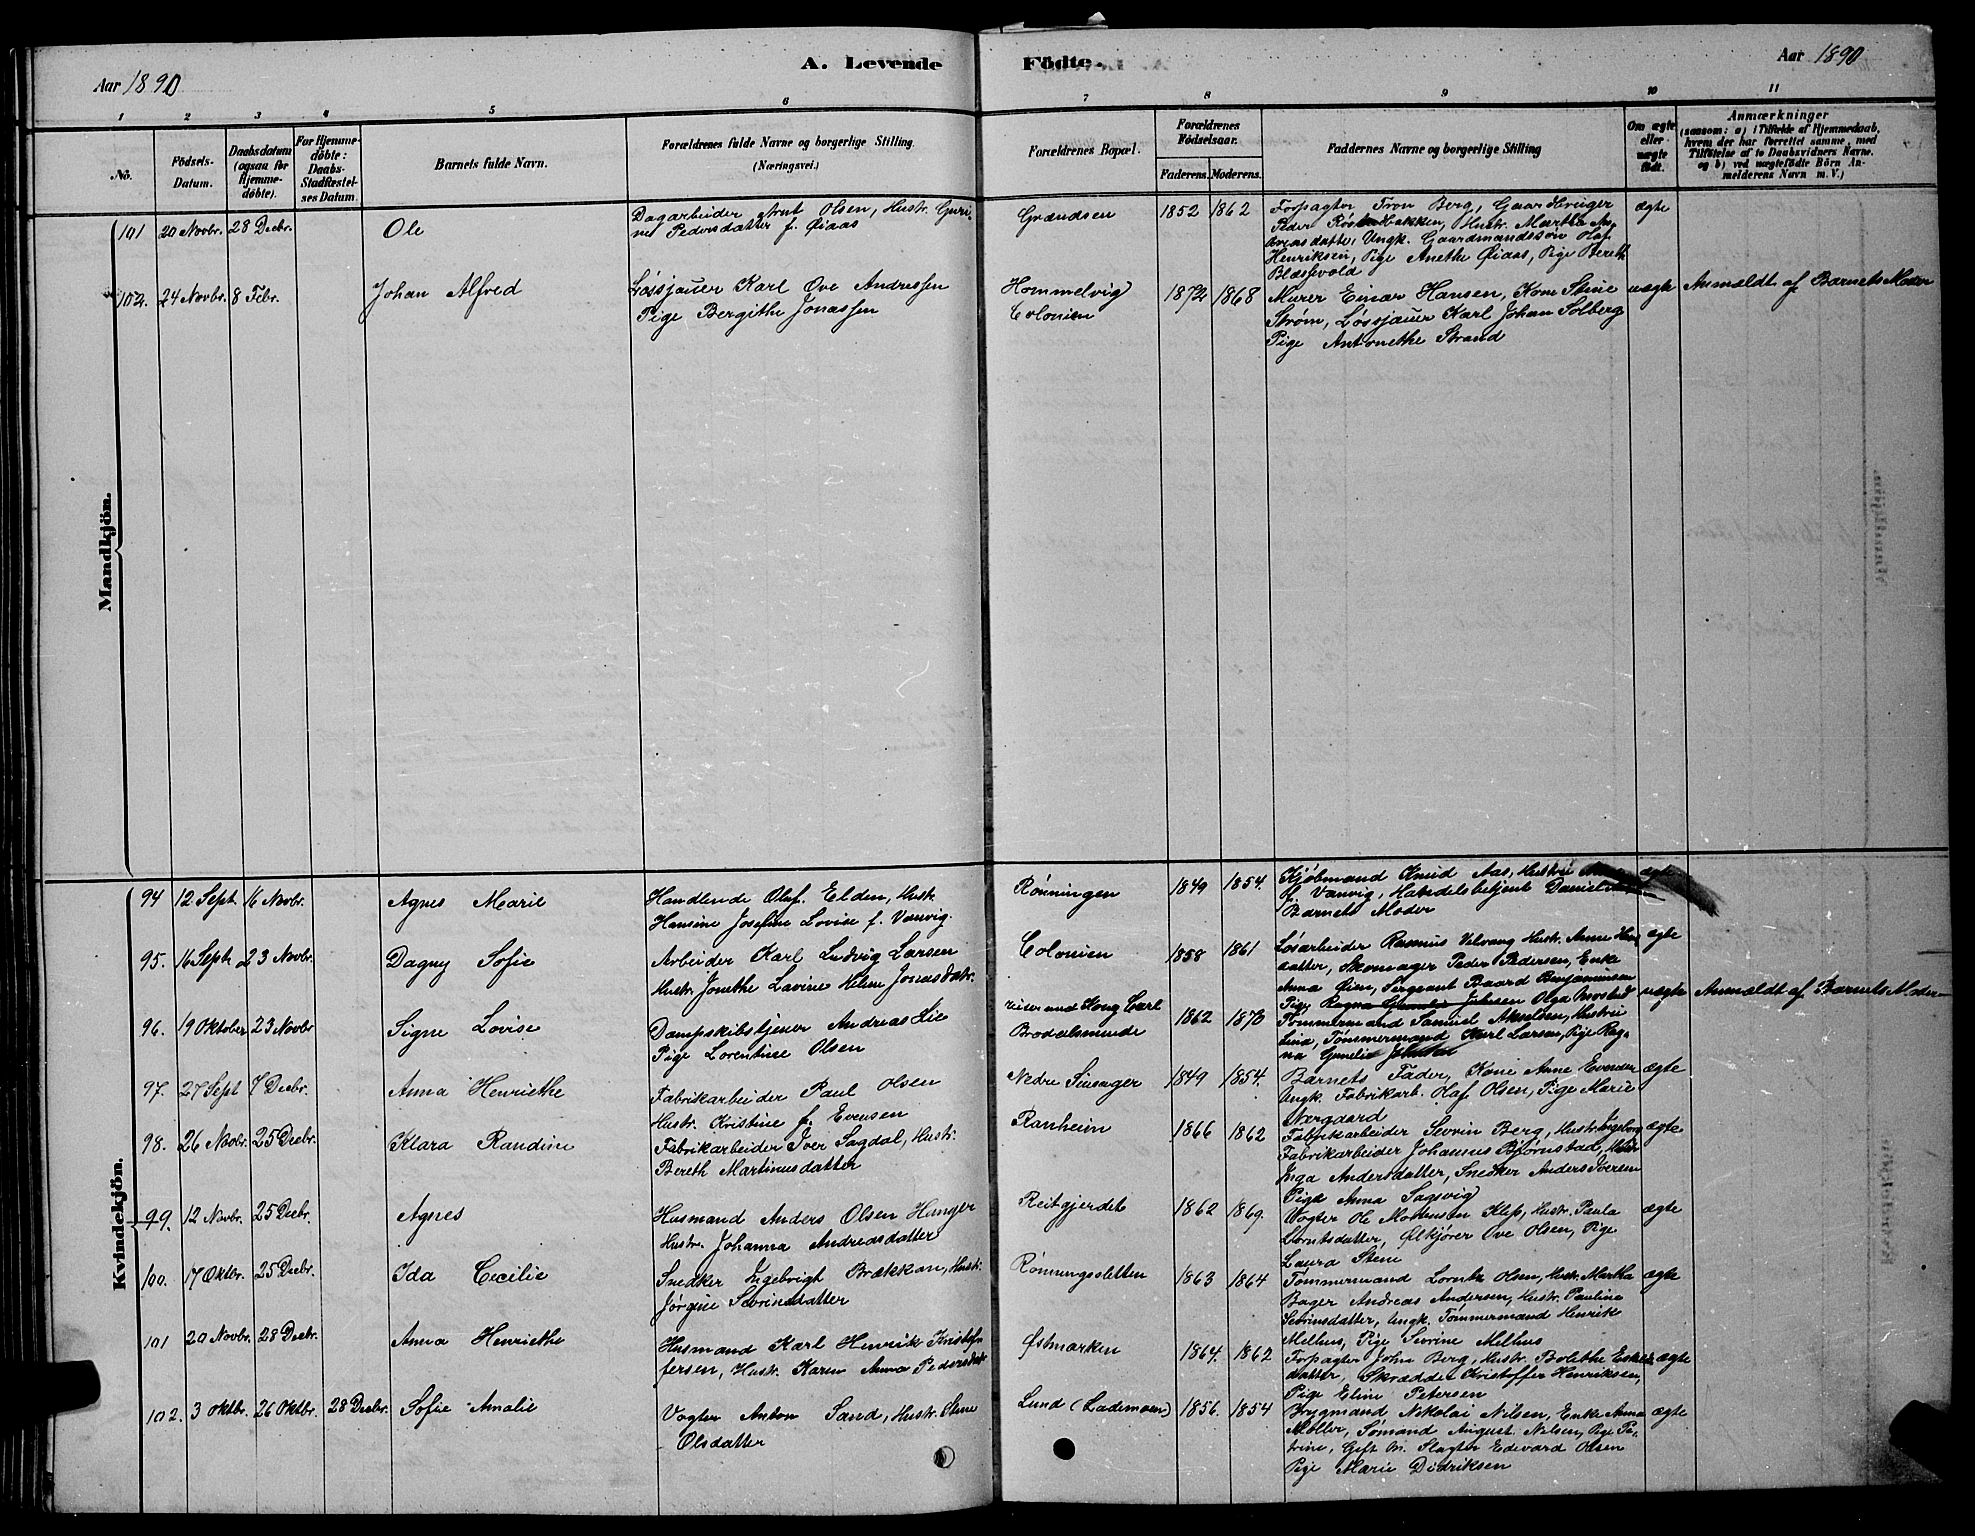 Aar 1890
A. Levende Födte.
Aar 1890
1 2 3 4 5 6 7 8 9 10 11
No.
Födsels-Datum.
Daabsdatum (ogsaa for Hjemme-döbte).
For Hjemme-döbte: Daabs-Stadfæstel-ses Datum.
Barnets fulde Navn.
Forældrenes fulde Navne og borgerlige Stilling. (Næringsvei.)
Forældrenes Bopæl.
Forældrenes Födselsaar.
Faderens. Moderens.
Faddernes Navne og borgerlige Stilling
Om ægte eller uægte født.
Anmærkninger
(saasom: a) i Tilfælde af Hjemmedaab, hvem der har forrettet samme, med Tilføielse af to Daabsvidners Navne, og b) ved uægtefødte Börn An-melderens Navn m. V.)
Mandkjön.
101 20 Novbr. 28 Decbr. Ole
Dagarbeider Arnt Olsen, Hustr. Guri-
ne Pedersdatter f. Øiaas
Grændsen 1852 1862
Forpagter Tron Berg, Gaardbruger
Peder Hustr. Martha An-
dreasdatter, Ungk. Gaardmandssøn Olaf
Henriksen, Pige Anethe Øiaas, Pige Bereth
Blæssevold
ægte
102. 24 Novbr. 8 Febr. Johan Alfred
Løssjauer Karl Ove Andressen
Pige Bergithe Jonassen
Hommelvig
Colonien
1872 1868
Murer Einar Hansen, Kone Stine
Strøm, Løssjauer Karl Johan Solberg
Pige Antonethe Strand
uægte Anmældt af Barnets Moder
Kvindekjön.
94 12 Sept 16 Novbr. Agnes Marie
Handlende Olaf Elden, Hustr.
Hansine Josefine Lovise f. Vanvig.
Rønningen 1849 1854.
Kjøbmand Knud Aas, Hustru
f. Vanvig, Handelsbetjent Daniel
Barnets Moder
ægte
95. 16 Sept. 23 Novbr. Dagny Sofie
Arbeider Karl Ludvig Larsen
Hustr. Jonethe Lavine Helene Jonasdatr.
Colonien 1858 1861
Løsarbeider Rasmus Velvang Hustr. Anne Han
datter, Skomager Peder Pedersen, Enke
Anna Øien, Sergeant Baard Benjaminsen
Pige Ragna Johsen Olga
ægte
96. 19 Oktober 23 Novbr Signe Lovise
Dampskibstjener Andreas Lie
Pige Lorentine Olsen
Kong Carl
1862 1870
Tømmermand Samuel Akselsen, Hustru
Lina, Tømmermand Karl Larsen, Pige Rag-
na Gunelie
uægte Anmældt af Barnets Moder
97. 27 Sept 7 Decbr. Anna Henriethe
Fabrikarbeider Paul Olsen
Hustr. Kristine f. Evensen
Nedre 1849 1854.
Barnets Fader, Kone Anne Evensen
Ungk. Fabrikarb. Olaf Olsen, Pige Marie
Nergaard
ægte
98. 26 Novbr. 25 Decbr. Klara Randine
Fabrikarbeider Iver Sagdal, Hustr.
Bereth Martinusdatter
Ranheim 1866 1862
Fabrikarbeider Sevrin Berg, Hustr. Ingeborg
Fabrikarbeider Johannes Bjørnstad, Hustr
Inga Andersdatter, Snedker Anders Iversen
Pige Anna Sagsvig
ægte
99. 12 Novbr. 25 Decbr. Agnes
Husmand Anders Olsen Hanger
Hustr. Johanna Andreasdatter
Reitgjerdet 1862 1869.
Vogter Ole Mortensen Klep, Hustr. Paula
Lorntsdatter, Ølkjører Ove Olsen, Pige
Laura Stene
ægte
100. 17 Oktbr. 25 Decbr. Ida Cecilie
Snedker Ingebrigt Brækkan, Hustr.
Jørgine Sevrinsdatter
Rønningsletten 1863 1864
Tømmermand Lornts Olsen, Hustr. Martha
Bager Andreas Andersen, Hustr. Pauline
Sevrinsdatter, Ungk. Tømmermand Henrik
Melhus, Pige Sevrine Melhus
ægte
101 20 Novbr. 28 Decbr. Anna Henriethe
Husmand Karl Henrik Kristof-
fersen, Hustr. Karen Anna Pedersdatr
Østmarken 1864. 1862
Forpagter John Berg, Hustr. Bolethe Eskels-
datter, Skrædder Kristoffer Henriksen,
Pige Eline Petersen
ægte
102. 3 Oktbr. 26 Oktbr. 28 Decbr. Sofie Amalie
Vogter Anton Sand, Hustr. Stine
Olsdatter
Lund (Lademoen) 1856. 1854
Brygmand Nikolai Nilsen, Enke Anna
Møller, Sømand August Nilsen, Pige Pe-
trine, Gift m. Slagter Edevard Olsen
Pige Marie Didriksen
ægte